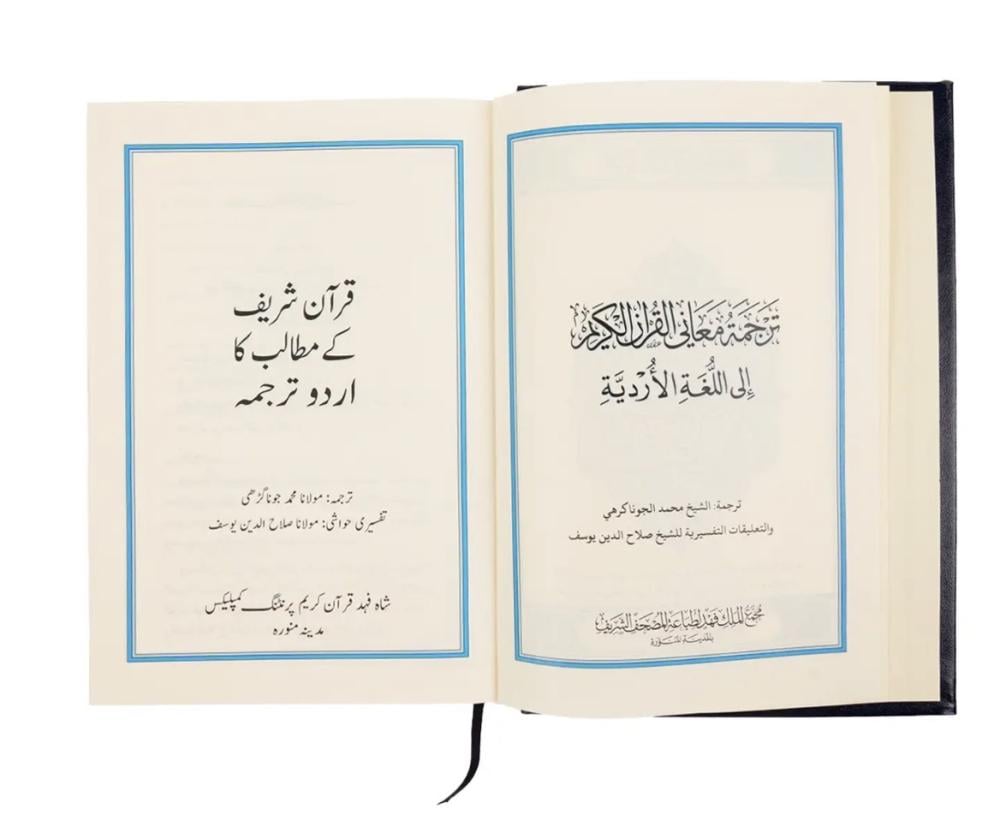 ترجمة معاني القرآن الكريم
إلى اللغة الأردية
ترجمة: الشيخ محمد الجوناكرهي
والتعليقات التفسيرية للشيخ صلاح الدين يوسف
مجمع الملك فهد لطباعة المصحف الشريف
بالمدينة المنورة
قرآن شریف
کے مطالب کا
اردو ترجمہ
ترجمہ: مولانا محمد جوناگڑھی
تفسیری حواشی: مولانا صلاح الدین یوسف
شاہ فہد قرآن کریم پرنٹنگ کمپلیکس
مدینہ منورہ